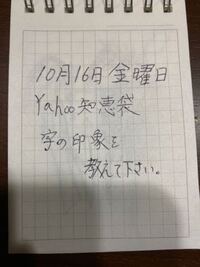 10月16日 金曜日
Yahoo知恵袋
字の印象を
教えて下さい。